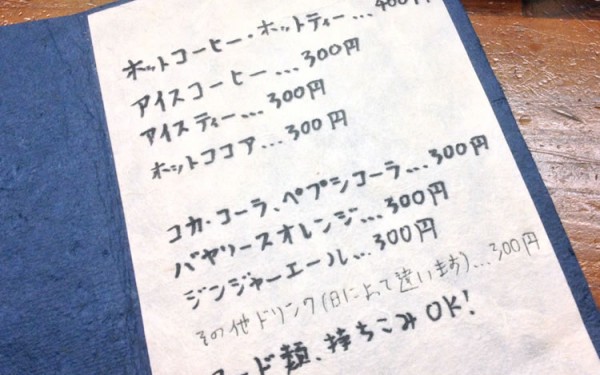 ホットコーヒー・ホットティー...400円
アイスコーヒー...300円
アイスティー...300円
ホットココア...300円
コカ・コーラ、ペプシコーラ...300円
バヤリースオレンジ...300円
ジンジャーエール...300円
その他ドリンク(日によって違います)...300円
フード類、持ちこみOK!